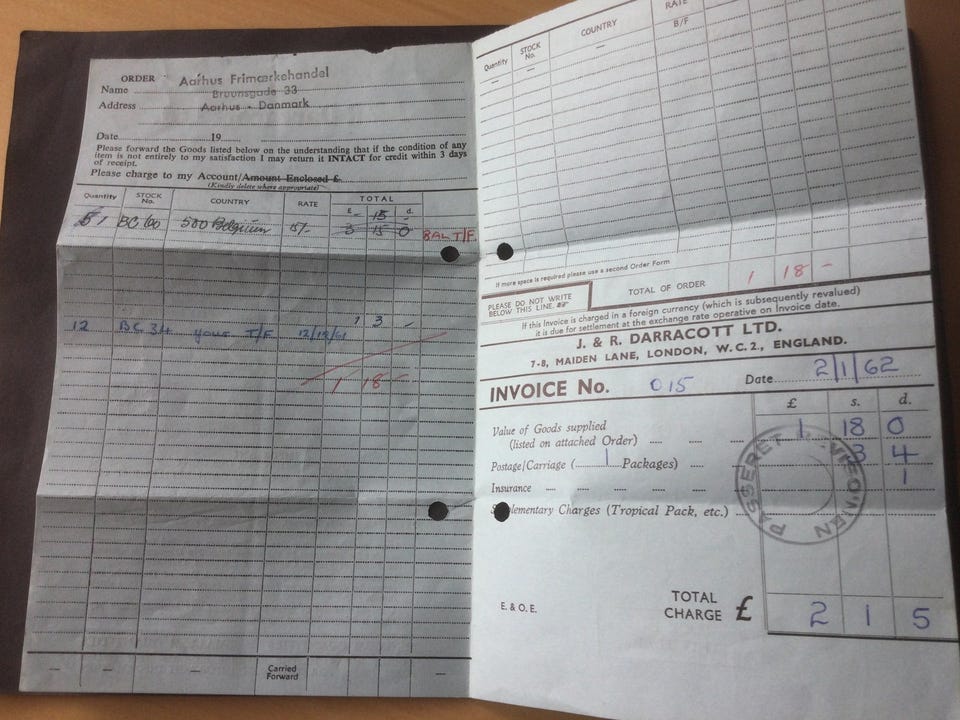 ORDER Aarhus Frimærkehandel
Name Bruunsgade 33
Address Aarhus - Danmark
Date 19
Please forward the Goods listed below on the understanding that if the condition of any
item is not entirely to my satisfaction I may return it INTACT for credit within 3 days
of receipt.
Please charge to my Account/Amount Enclosed £
(Kindly delete where appropriate)
Quantity STOCK No. COUNTRY RATE TOTAL
£ s. d.
- 15 -
1 BC 60 500 Belgium 15/- 3 15 0 BAL T/F.
12 BC 34 your T/F 12/12/61 1 3 -
1 18 -
— — — Carried Forward —
Quantity STOCK No. COUNTRY RATE
— — — B/F
If more space is required please use a second Order Form
TOTAL OF ORDER 1 18 -
PLEASE DO NOT WRITE
BELOW THIS LINE.
If this Invoice is charged in a foreign currency (which is subsequently revalued)
it is due for settlement at the exchange rate operative on Invoice date.
J. & R. DARRACOTT LTD.
7-8, MAIDEN LANE, LONDON, W.C.2., ENGLAND.
INVOICE No. 015 Date 2/1/62
£ s. d.
Value of Goods supplied
(listed on attached Order) 1 18 0
Postage/Carriage (1 Packages) 3 4
Insurance 1
lementary Charges (Tropical Pack, etc.)
PASSERET VIEOMEN
E. & O. E. TOTAL CHARGE £ 2 1 5